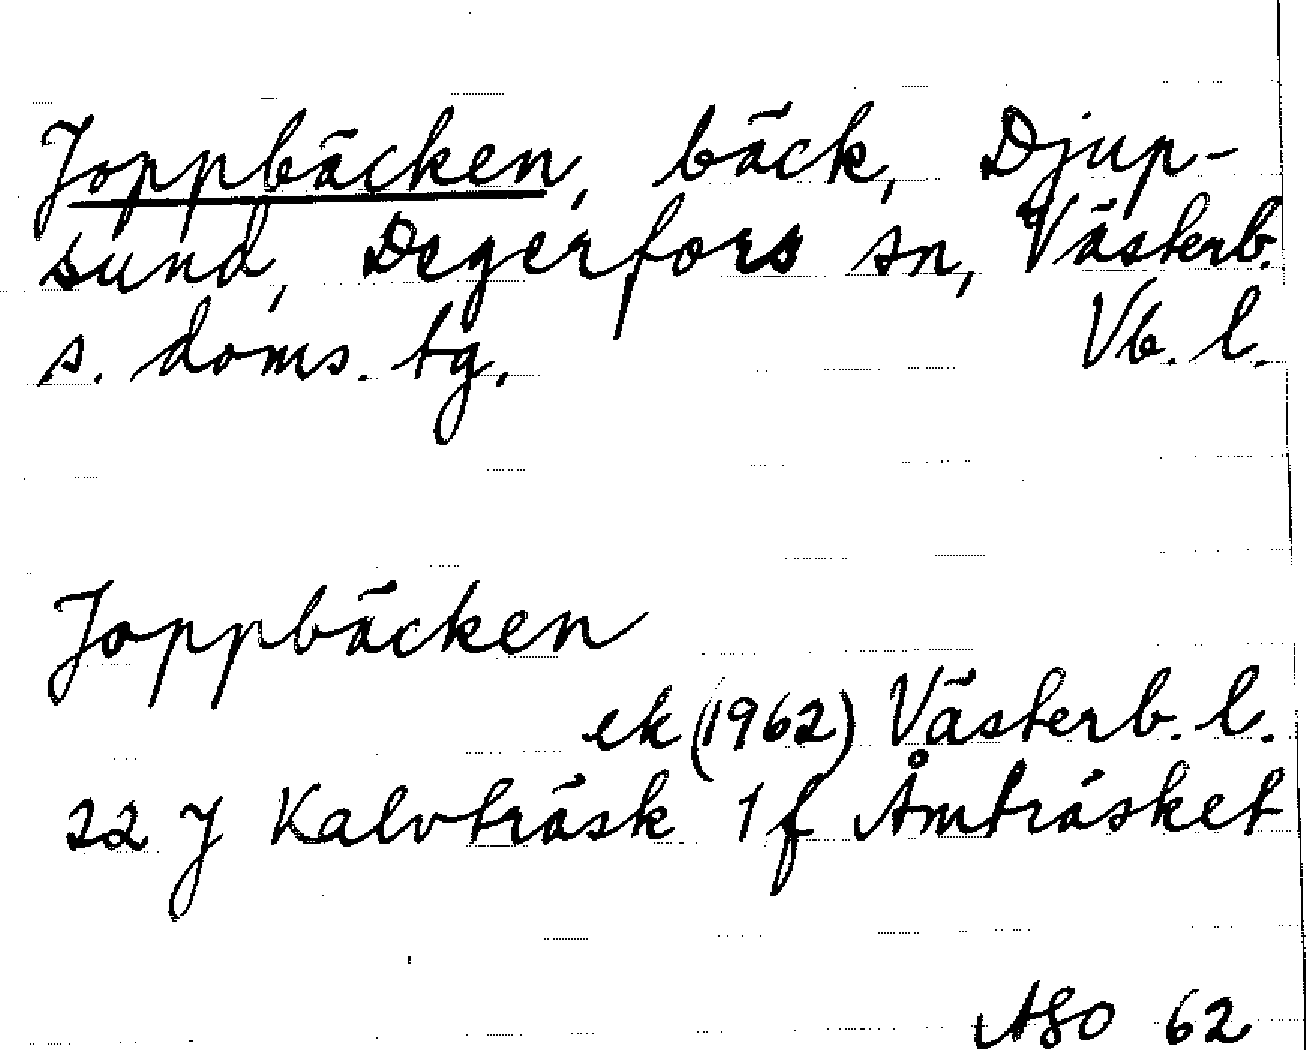 Joppbäcken, bäck, Djup-
sund, Degerfors sn, Västerb.
s. doms. tg. Vb. l.
Joppbäcken
ek (1962) Västerb. l.
22 J Kalvträsk 1 f Åmträsket
62